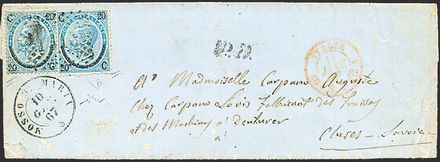 C 20 20 C
20 C C 20
P. D.
MOSSO S. MARIA
10
GIU
67
A Mademoiselle Carpano Auguste
Chez Carpano Louis Fabricant des Fraises
et des Machines à Denturer
à
Cluses - Savoie